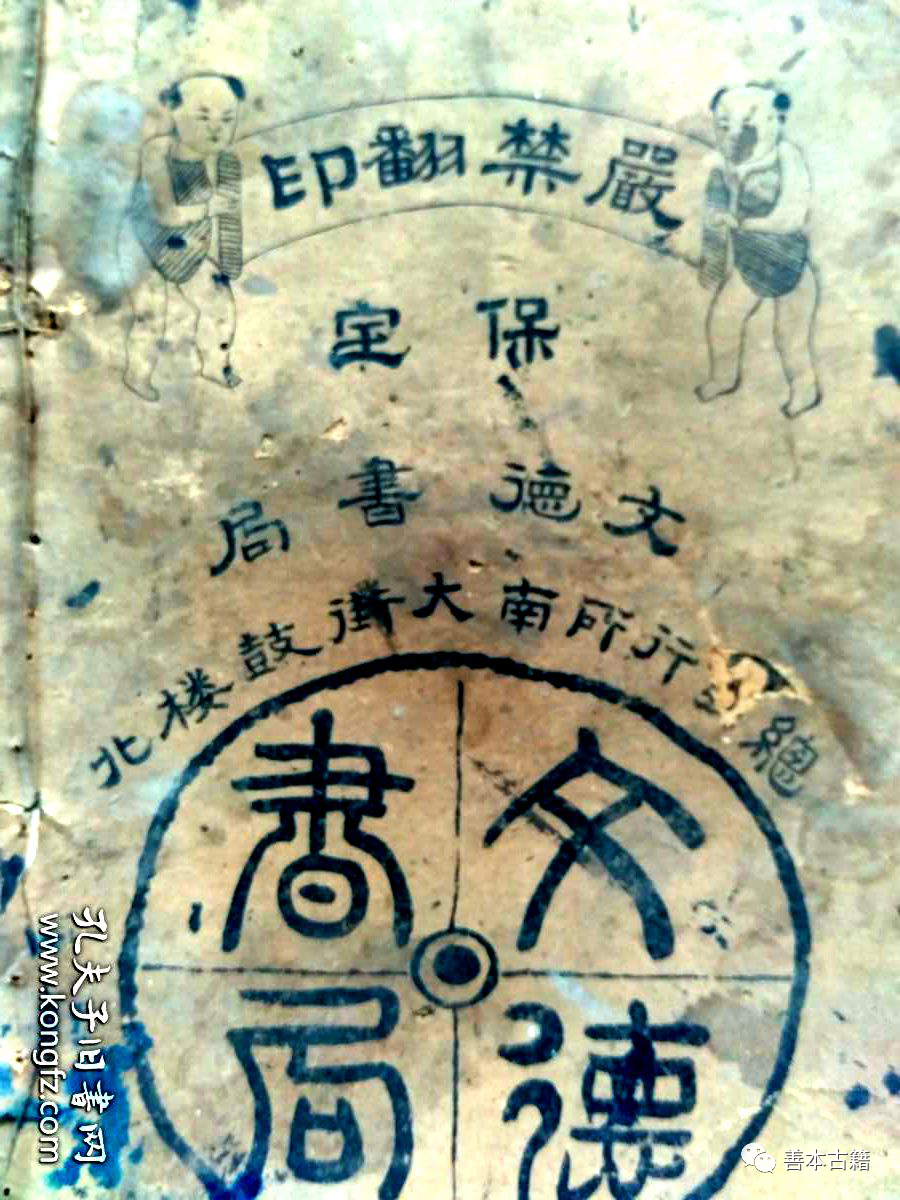 嚴禁翻印
保定
文德書局
總發行所南大街鼓楼北
文德書局
孔夫子旧书网
www.kongfz.com
善本古籍